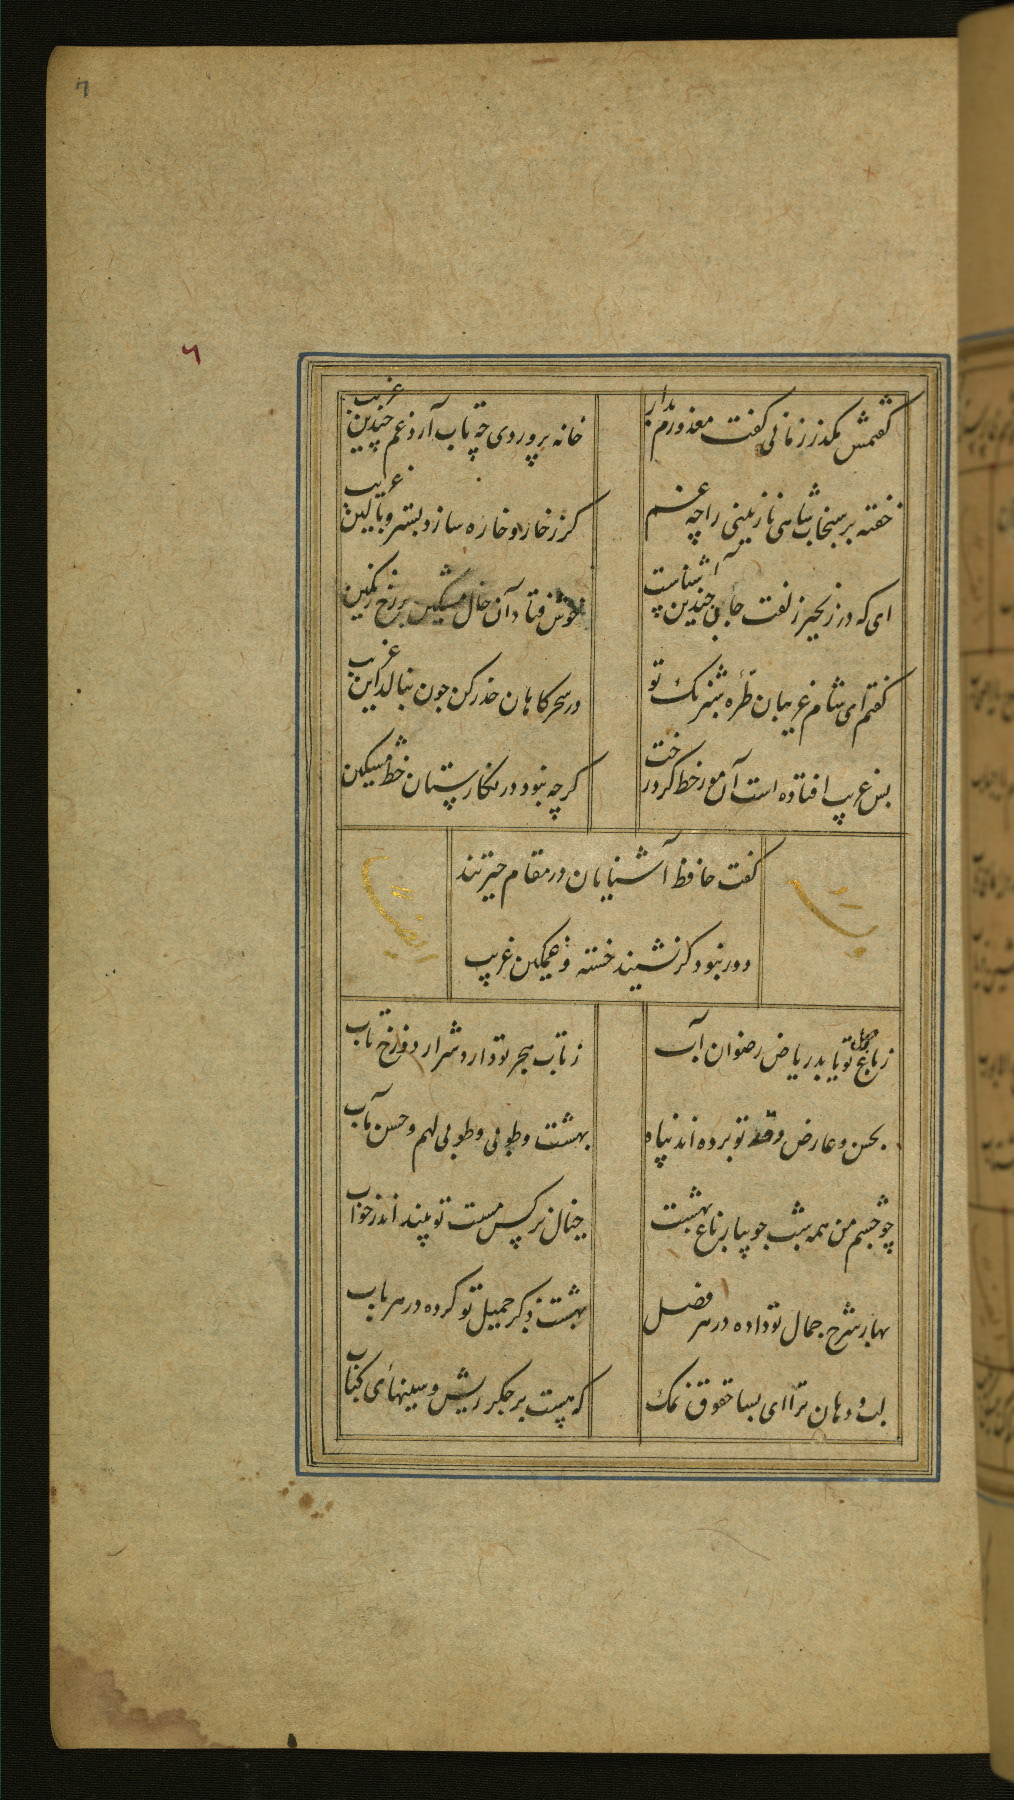 ۶
گفتمش مگذر زمانی گفت معذورم بدار
خانه پروردی چه تاب آرد غم چندین غریب
خفته بر سنجاب شاهی نازنینی را چه غم
گر ز خار و خاره سازد بستر و بالین غریب
ای که در زنجیر زلفت جای چندین آشناست
خوش فتاد آن خال مشکین بر رخ رنگین
گفتم ای شام غریبان طره شبرنگ تو
در سحرگاهان حذر کن چون بنالد این غریب
بس غریب افتاده است آن مور خط گرد رخت
گرچه نبود در نگارستان خط مشکین
گفت حافظ آشنایان در مقام حیرتند
دور نبود گر نشیند خسته و غمگین غریب
ز باغ وصل تو یابد ریاض رضوان آب
ز تاب هجر تو دارد شرار دوزخ تاب
بحسن و عارض و قد تو برده اند پناه
بهشت و طوبی و طوبی لهم و حسن مآب
چو چشم من همه شب جویبار باغ بهشت
خیال نرگس مست تو بیند اندر خواب
بهار شرح جمال تو داده در هر فصل
بهشت ذکر جمیل تو کرده در هر باب
لب و دهان ترا ای بسا حقوق نمک
که هست بر جگر ریش و سینهای کباب